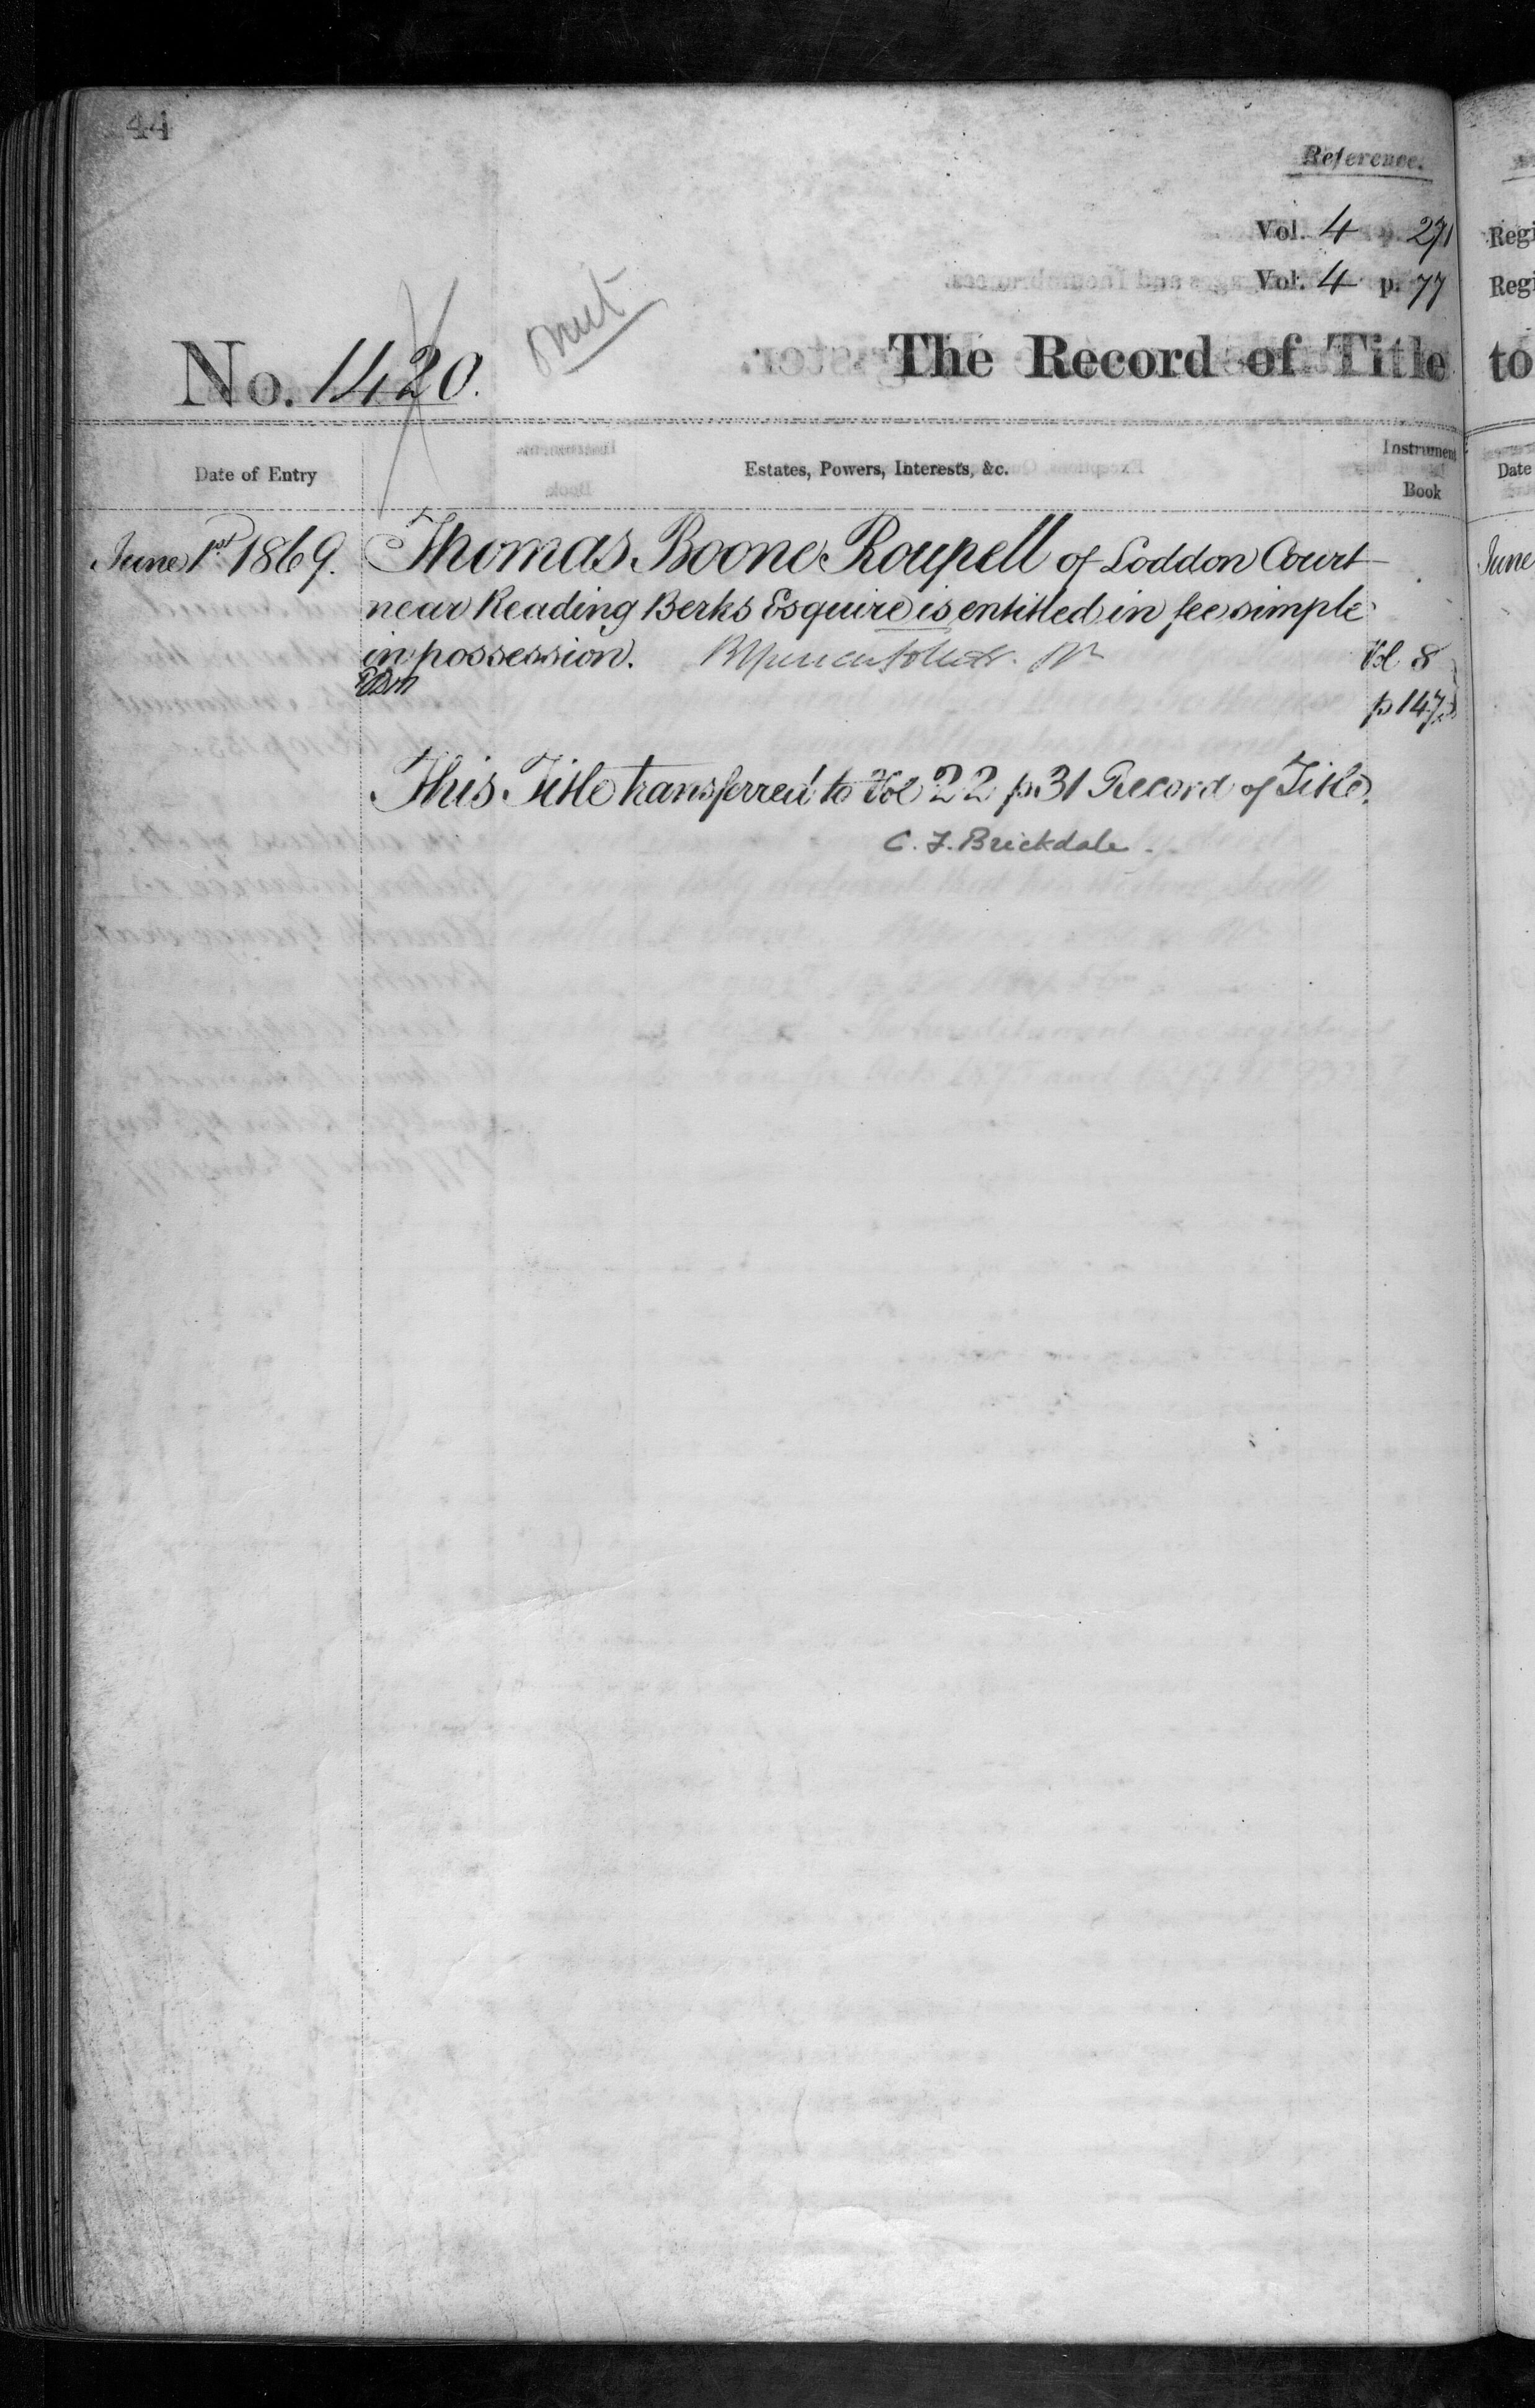 44
Reference.
Vol. 4 p. 271
Vol. 4 p. 77
omit
No. 1420.
The Record of Title
Date of Entry
Estates, Powers, Interests, &c.
Instrument
Book
June 1st 1869.
Thomas Boone Roupell of Loddon Court
near Reading Berks Esquire is entitled in fee simple
in possession.
Vol 8
p 147
This Title transferred to Vol 22 p. 31 Record of Title.
C. F. Brickdale.
Regi
Regi
to
Date
June